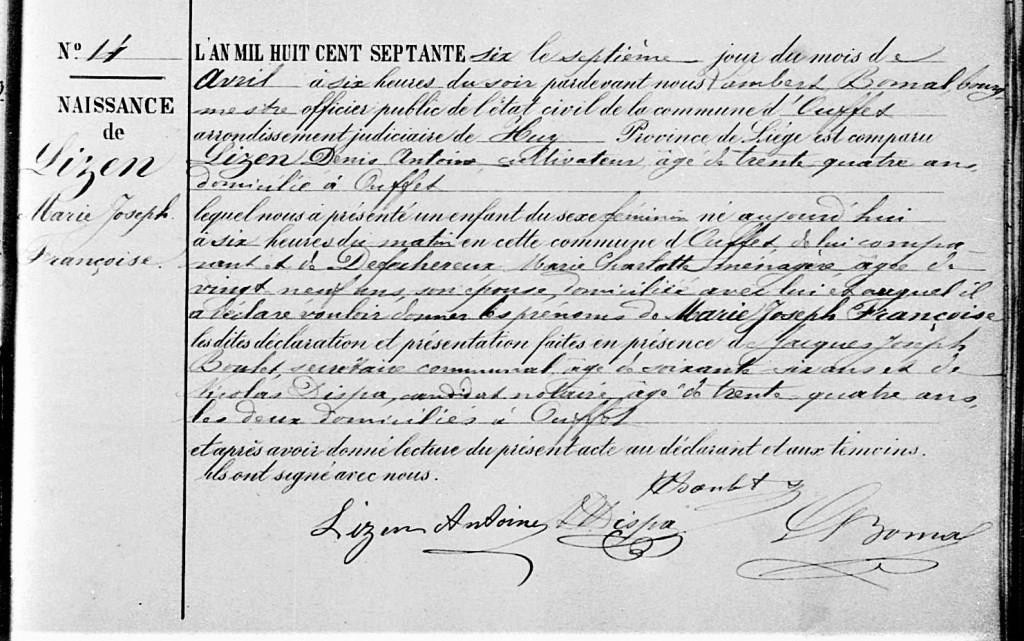 N° 14
NAISSANCE
de
Lizen
Marie Joseph
Françoise.
L'AN MIL HUIT CENT SEPTANTE six le septième jour du mois de
avril à six heures du soir pardevant nous Lambert Bomal, bourg
mestre officier public de l'état civil de la commune d'Ouffet
arrondissement judiciaire de Huy Province de Liége est comparu
Lizen Denis Antoine, cultivateur, âgé de trente quatre ans,
domicilié à Ouffet
lequel nous à présenté un enfant du sexe féminin né aujourd'hui
à six heures du matin en cette commune d'Ouffet, de lui compa-
rant et de Defechereux Marie Charlotte, ménagère, âgée de
vingt neuf ans, son épouse, domiciliée avec lui et auquel il
a déclaré vouloir donner les prénoms de Marie Joseph Françoise
les dites déclaration et présentation faites en présence de Jacques Joseph
Boulet, secrétaire communal, âgé de soixante six ans et de
Nicolas Dispa, candidat notaire, âgé de trente quatre ans,
les deux domiciliés à Ouffet
et après avoir donné lecture du présent acte au déclarant et aux témoins.
ils ont signé avec nous.
Boulet
Lizen Antoine Dispa
L Bomal